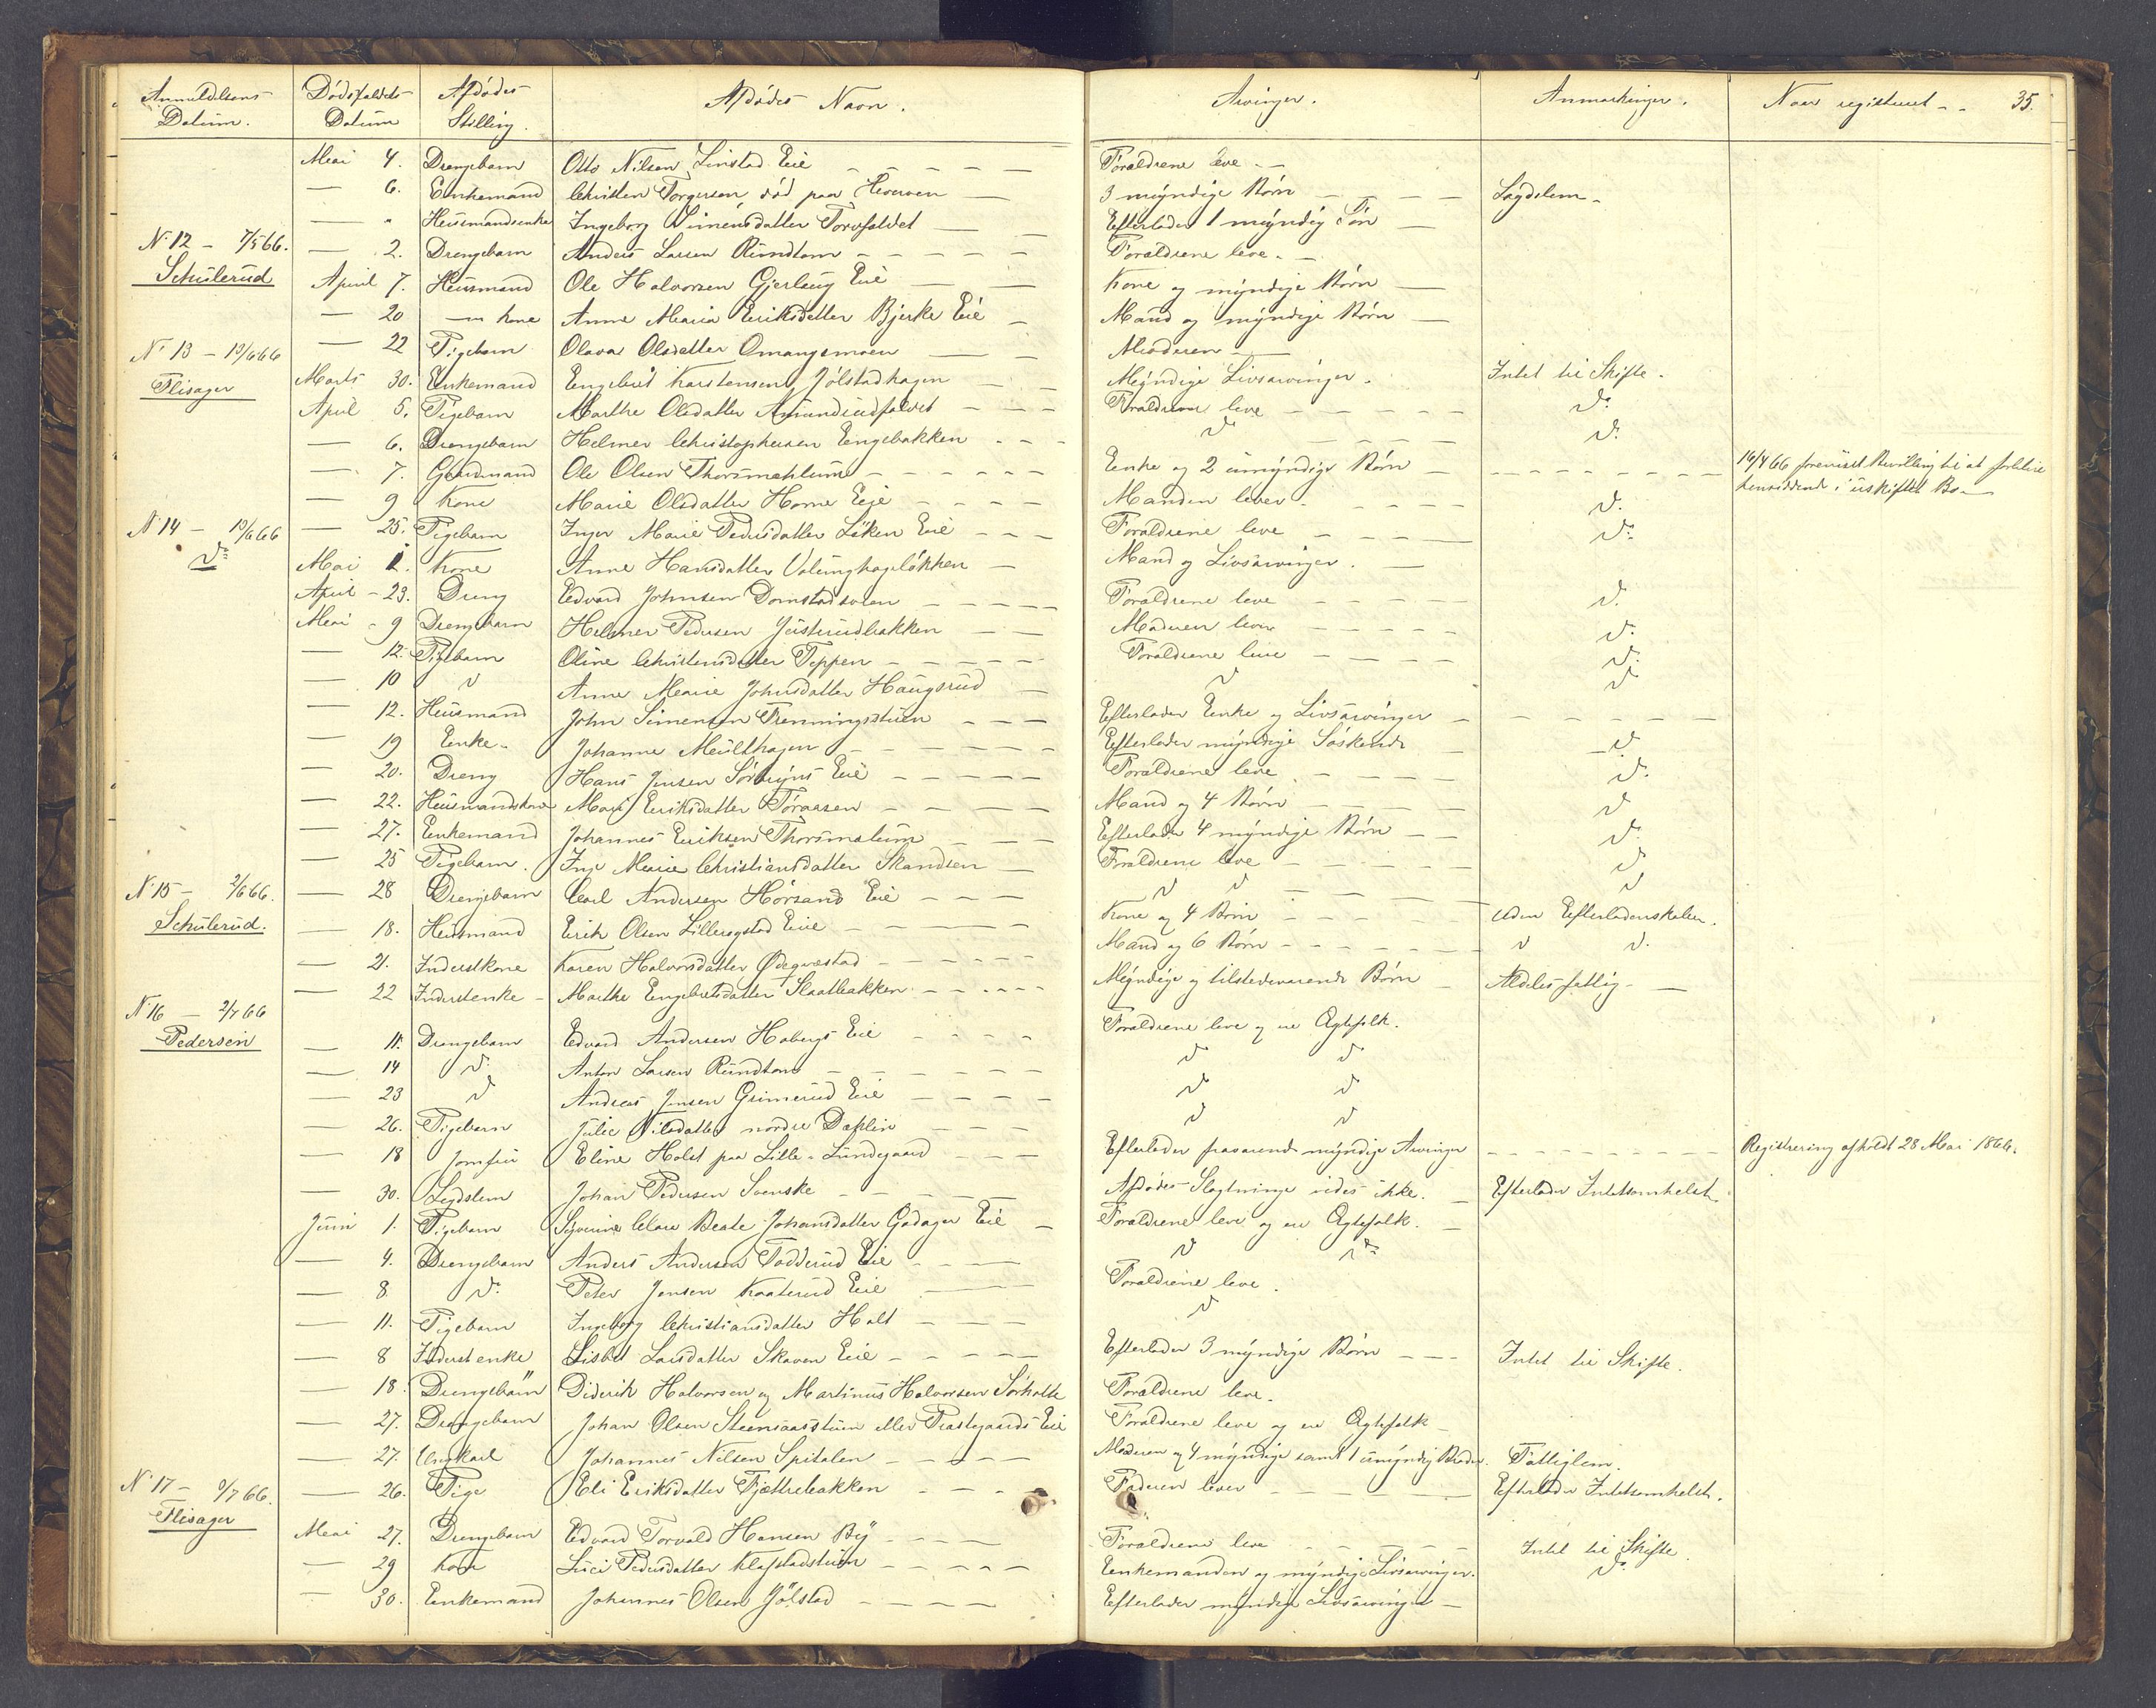 Anmeldelsens Datum. Dödsfaldets Datum Afdödes Stilling. Afdödes Navn. Arvinger. Anmærkninger. Naar registreret - - 35.
Mai 4. Drengebarn Otto Nilsen Linstad Eie Forældrene leve
— 6. Enkemand Christen Torgersen, död paa 3 myndige Børn Lægdslem
— " Huusmandsenke Ingeborg Simensdatter Torvfaldet Efterlader 1 myndig Søn
N: 12 - 7/5 66. — 2. Drengebarn Anders Larsen Rundtom Forældrene leve.
Schulerud April 7. Huusmand Ole Halvorsen Gjerlaug Eie Kone og myndige Børn
— 20 — kone Anne Maria Eriksdatter Bjerke Eie Mand og myndige Børn
N: 13 - 13/6 66 — 22 Pigebarn Olava Olsdatter Omangsmoen Moderen
Flisager Marts 30. Enkemand Engebret Karstensen Jölstadhagen Myndige Livsarvinger. Intet til Skifte.
April 5. Pigebarn Marthe Olsdatter Amundrudfaldet Forældrene leve do
— 6. Drengebarn Helmer Christophersen Engebakken do do
— 7. Gaardmand Ole Olsen Thorsmæhlum Enke og 2 umyndige Børn 14/4 66 foreviist Bevilling til at forblive
hensiddende i uskiftet Bo
— 9 Kone Marie Olsdatter Horne Eje Manden lever. do
N: 14 - 13/6 66 — 25. Pigebarn Inger Marie Pedersdatter Löken Eie Forældrene leve do
do Mai 1. Kone Anne Hansdatter Valunghagelökken Mand og Livsarvinger.
April - 23. Dreng Edvard Johnsen Domstadvolen Forældrene leve do
Mai - 9 Drengebarn Helmer Pedersen Justerudbakken Moderen lever do
— 12. Pigebarn Oline Christensdatter Teppen Forældrene leve do
— 10 do Anne Marie Johnsdatter Haugsrud do do
— 12. Huusmand John Simensen Trenningsstuen Efterlader Enke og Livsarvinger
— 19 Enke Johanne Meulthagen Efterlader myndige Søskende do
— 20. Dreng Hans Jensen Eie Forældrene leve do
— 22. Huusmandskone Mari Eriksdatter Töraasen Mand og 4 Børn do
— 27. Enkemand Johannes Eriksen Thorsmælum Efterlader 4 myndige Børn do
— 25 Pigebarn. Inge Marie Christiansdatter Skandsen Forældrene leve do
N: 15 - 2/6 66. — 28 Drengebarn Carl Andersen Hörsand Eie do do do
Schulerud. — 18. Huusmand Erik Olsen Lillerogstad Eie Kone og 4 Børn Uden Efterladenskaber.
— 21. Inderstkone Karen Halvorsdatter Ødegvestad Mand og 6 Børn do do
— 22 Inderstenke Marthe Engebretsdatter Slaatbakken Myndige og tilstedeværende Børn Aldeles fattig
N: 16 - 2/7 66
Pedersen — 11. Drengebarn Edvard Andersen Habergs Eie Forældrene leve og ere Ægtefolk.
— 14 do Anton Larsen Rundtom do do
— 23 do Andreas Jensen Grimerud Eie do do
— 26. Pigebarn Julie Nilsdatter nordre Dahlin do do
— 18 Jomfru Eline Holst paa Lille-Lundgaard Efterlader fraværende myndige Arvinger Registrering afholdt 28 Mai 1866.
— 30. Legdslem Johan Pedersen Svenske Afdødes Slægtninge vides ikke. Efterlader Intetsomhelst.
Juni 1. Pigebarn Severine Clara Beate Johansdatter Gadager Eie Forældrene leve og ere Ægtefolk.
— 4. Drengebarn Anders Andersen Todderud Eie do do
— 8 do Peter Jensen Kaaterud Eie Forældrene leve.
— 11. Pigebarn Ingeborg Christiansdatter Holt do
— 8 Inderstenke Lisbet Larsdatter Skaven Eie Efterlader 3 myndige Børn Intet til Skifte.
— 18. Drengebørn Diderik Halvorsen og Martinus Halvorsen Sörholte Forældrene leve.
— 27. Drengebarn Johan Olsen Steensaasstuen eller Præstegaards Eie Forældrene leve og ere Ægtefolk
— 27. Ungkarl Johannes Nilsen Spitalen Moderen og 4 myndige samt 1 umyndig Broder. Fattiglem.
N: 17 - 9/7 66. — 26. Pige Eli Eriksdatter Fjættrebakken Faderen lever Efterlader Intetsomhelst.
Flisager Mai 27. Drengebarn Edvard Torvald Hansen By Forældrene leve Intet til Skifte.
— 29 Kone Luci Pedersdatter Klafstadstuen Enkemanden og myndige Livsarvinger. do
— 30. Enkemand Johannes Olsen Jölstad Efterlader myndige Livsarvinger